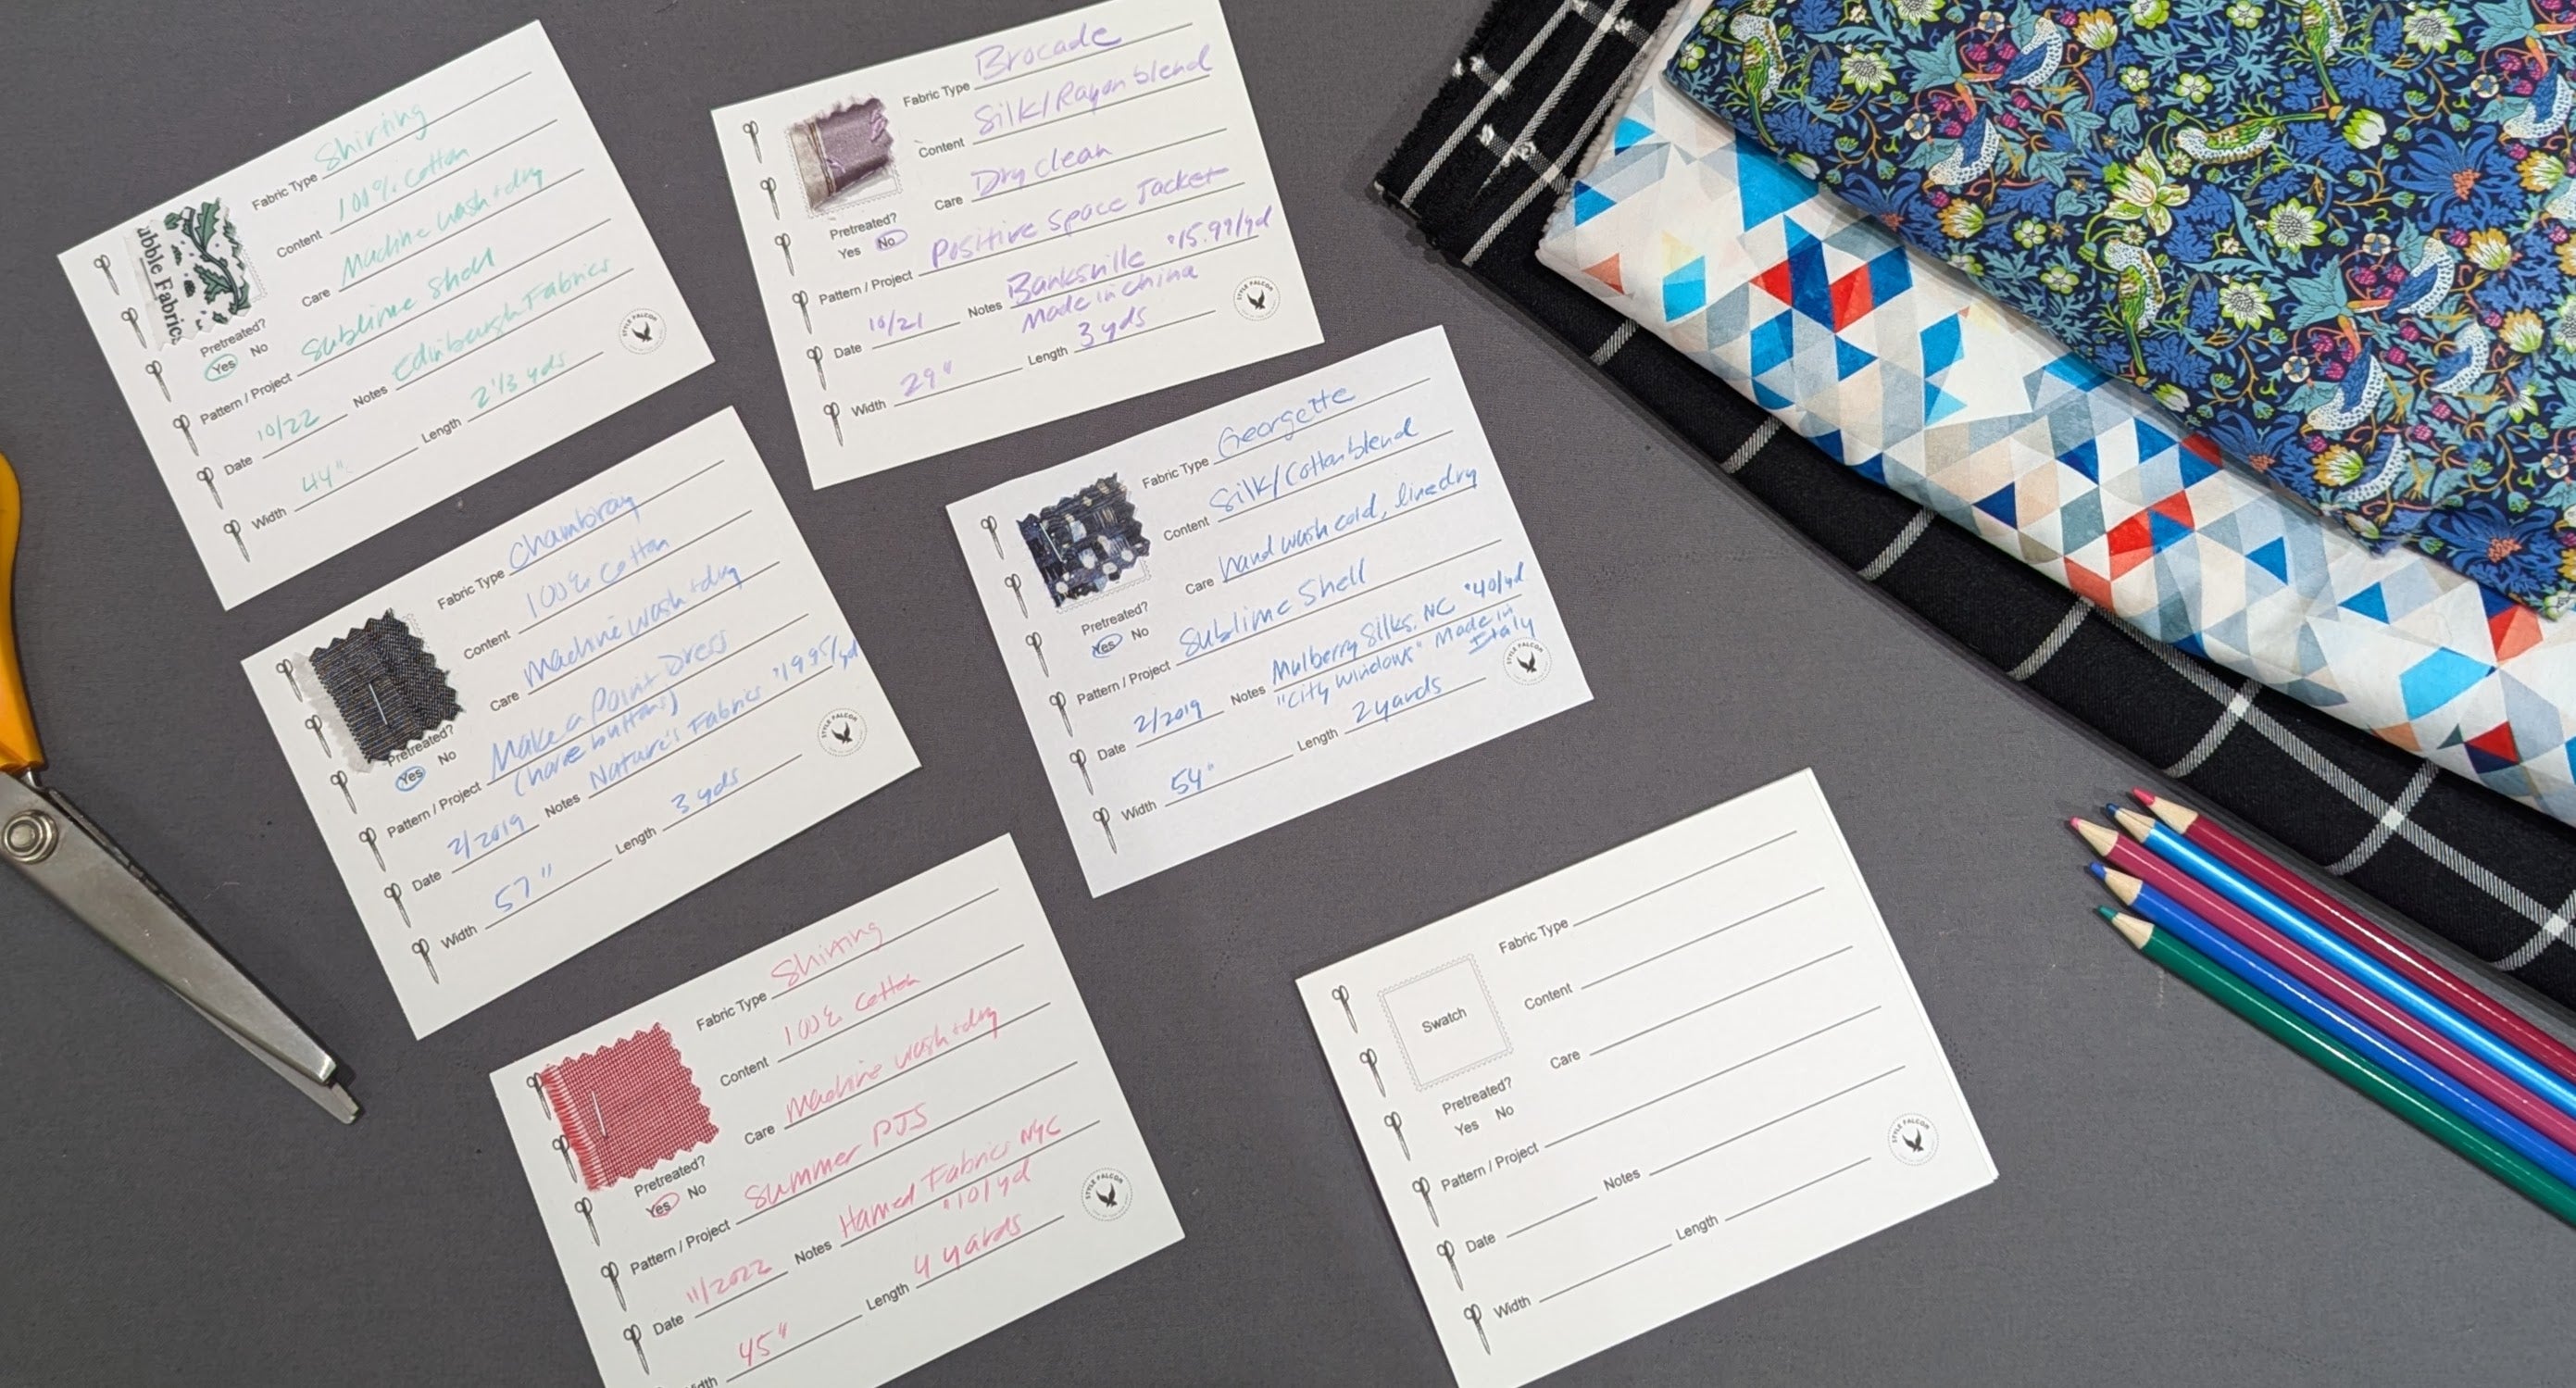 Fabric Type Shirting
Content 100% Cotton
Care Machine wash + dry
abble Fabrics
Pretreated?
Yes No
Pattern / Project Sublime Shell
Date 10/22 Notes Edinburgh Fabrics
Width 44" Length 2 1/3 yds
STYLE FALCON
Fabric Type Brocade
Content Silk/Rayon blend
Care Dry clean
Pretreated?
Yes No
Pattern / Project Positive Space Jacket
Date 10/21 Notes Banksville $15.99/yd
Made in China
Width 29" Length 3 yds
STYLE FALCON
Fabric Type Chambray
Content 100% Cotton
Care Machine wash + dry
Pretreated?
Yes No
Pattern / Project Make a Point Dress
(have buttons)
Date 2/2019 Notes Nature's Fabrics $19.95/yd
Width 57" Length 3 yds
STYLE FALCON
Fabric Type Georgette
Content Silk/Cotton blend
Care hand wash cold, line dry
Pretreated?
Yes No
Pattern / Project Sublime Shell
Date 2/2019 Notes Mulberry Silks, NC $40/yd
"City Windows" Made in
Italy
Width 54" Length 2 yards
STYLE FALCON
Fabric Type Shirting
Content 100% Cotton
Care Machine wash + dry
Pretreated?
Yes No
Pattern / Project Summer PJS
Date 11/2022 Notes Hamed Fabrics NYC
$10/yd
Width 45" Length 4 yards
STYLE FALCON
Fabric Type
Swatch
Content
Care
Pretreated?
Yes No
Pattern / Project
Date Notes
Width Length
STYLE FALCON